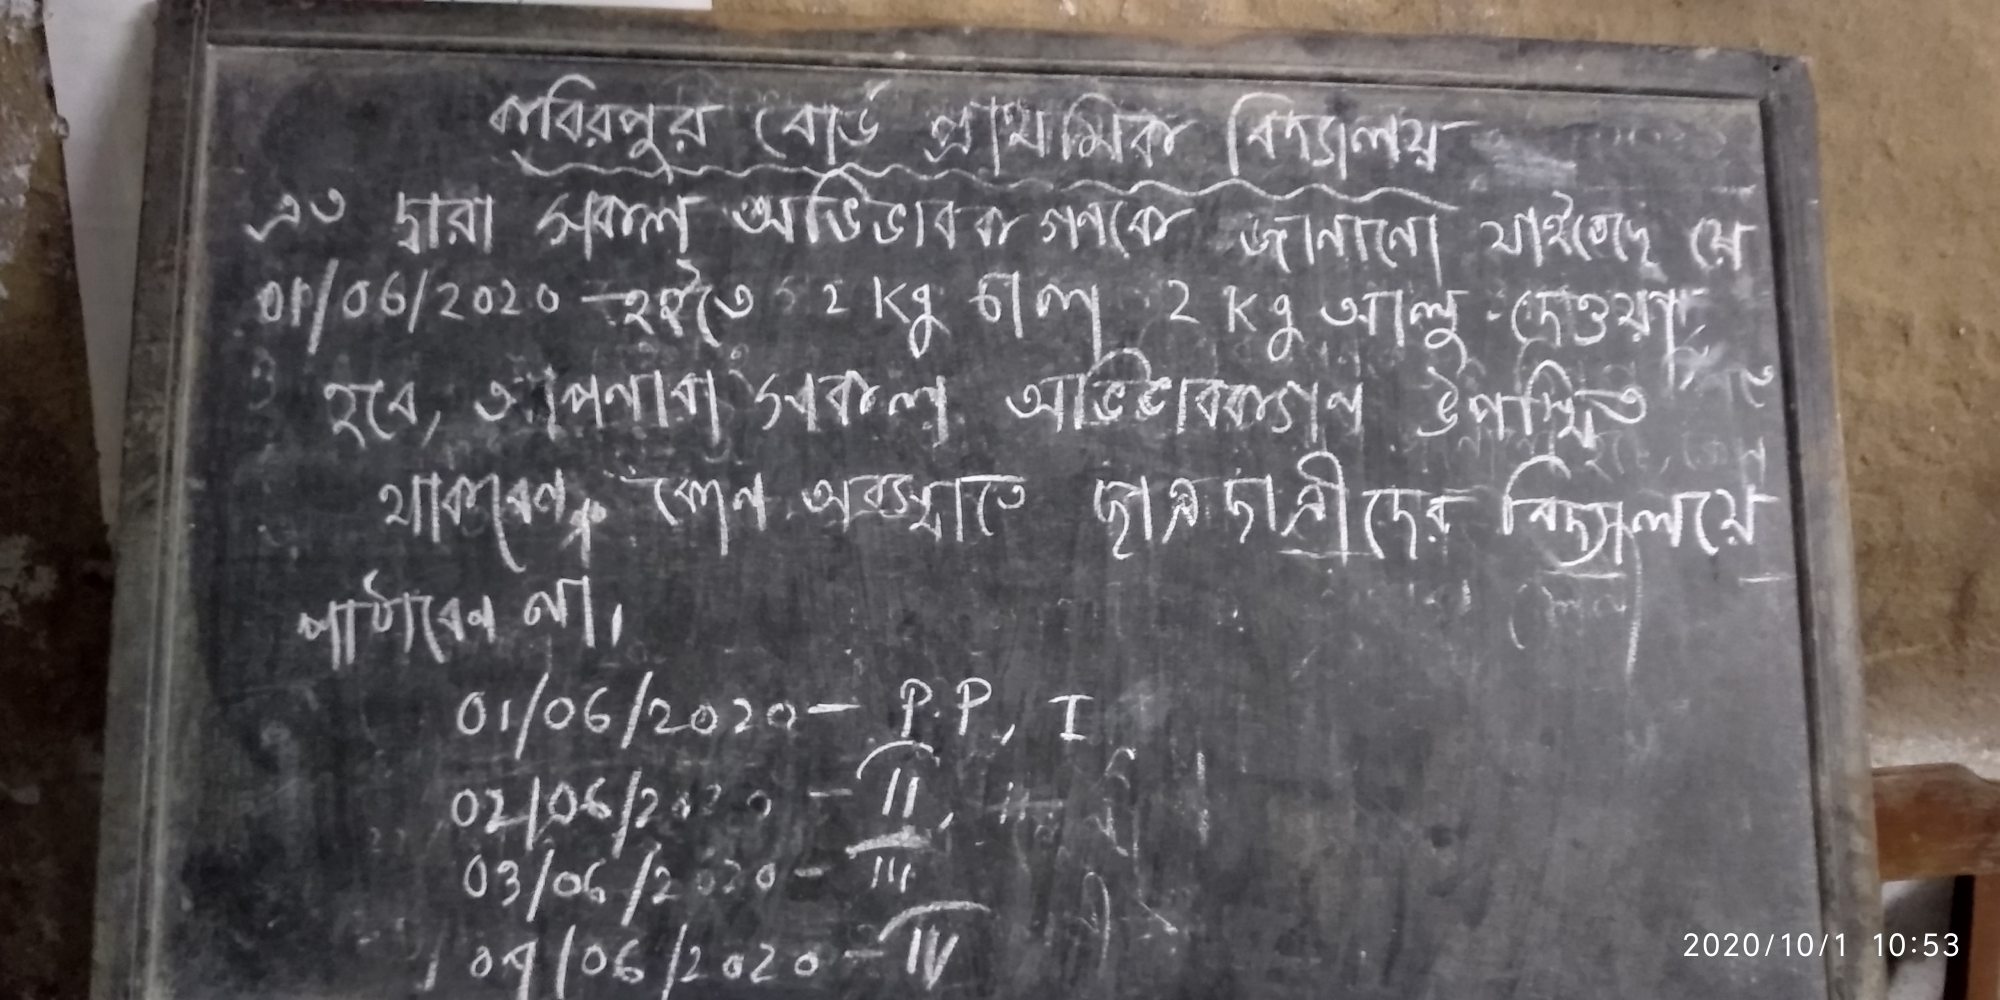 কাবিরপুর বোর্ড প্রাথমিক বিদ্যালয়
এত দ্বারা সকল অভিভাবক গনকে জানানো যাইতেছে যে
01/06/2020 - হইতে 2 Kg চাল 2 Kg আলু দেওয়া
হবে, আপনারা সকল অভিভাবকগণ উপস্থিত
থাকবেন, কোন অবস্থাতে ছাত্রছাত্রীদের বিদ্যালয়ে
পাঠাবেন না।
01/06/2020 - P.P, I
02/06/2020 - II,
03/06/2020 - III
04/06/2020 - IV
2020/10/1 10:53